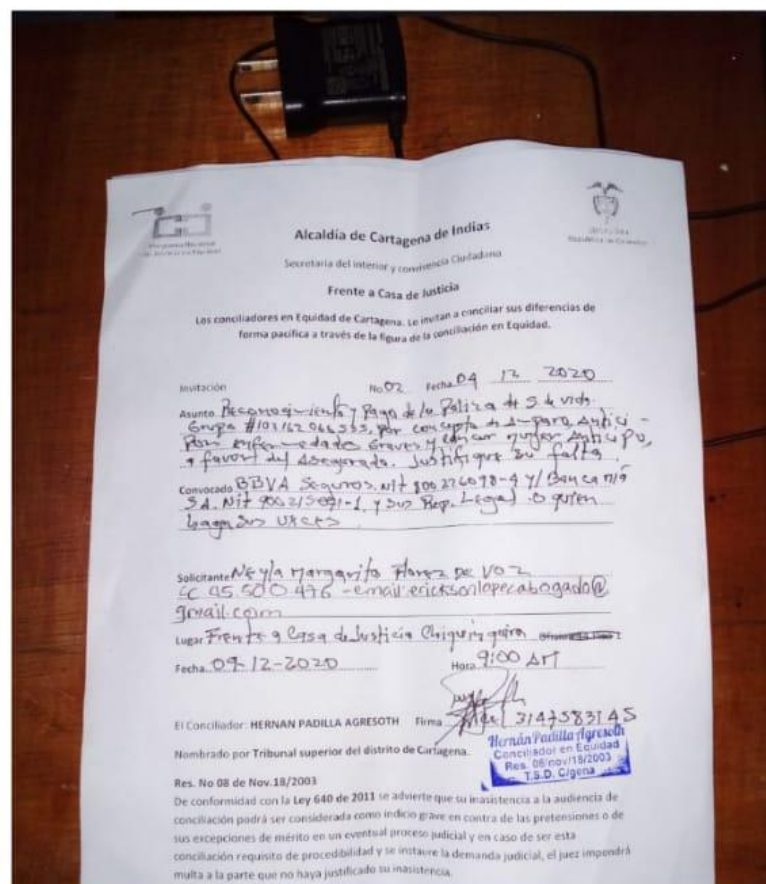 Programa Nacional
Alcaldía de Cartagena de Indias
República de Colombia
Secretaria del interior y convivencia Ciudadana
Frente a Casa de Justicia
Los conciliadores en Equidad de Cartagena. Le invitan a conciliar sus diferencias de
forma pacifica a través de la figura de la conciliación en Equidad.
Invitación No 02 Fecha 04 12 2020
Asunto Reconocimiento y Pago de la Poliza de S de vida
Grupo por concepto de Amparo Antici-
Por enfermedades Graves y cancer mujer Anticipo,
a favor del Asegurado. Justifique su falta
Convocado BBVA Seguros. nit y/
SA. Nit y sus Rep. Legal o quien
haga sus veces
Solicitante Neyla Margarita Florez De Voz
CC 45.500.476 - email: ericksonlopecabogado@
gmail.com
Lugar Frente a Casa de Justicia Chiquinquira
Fecha 09-12-2020 Hora 9:00 AM
El Conciliador: HERNAN PADILLA AGRESOTH Firma 3147583145
Nombrado por Tribunal superior del distrito de Cartagena.
Hernán Padilla Agresoth
Conciliador en Equidad
Res. 08/nov/18/2003
T.S.D. C/gena
Res. No 08 de Nov.18/2003
De conformidad con la Ley 640 de 2011 se advierte que su inasistencia a la audiencia de
conciliación podrá ser considerada como indicio grave en contra de las pretensiones o de
sus excepciones de mérito en un eventual proceso judicial y en caso de ser esta
conciliación requisito de procedibilidad y se instaure la demanda judicial, el juez impondrá
multa a la parte que no haya justificado su inasistencia.